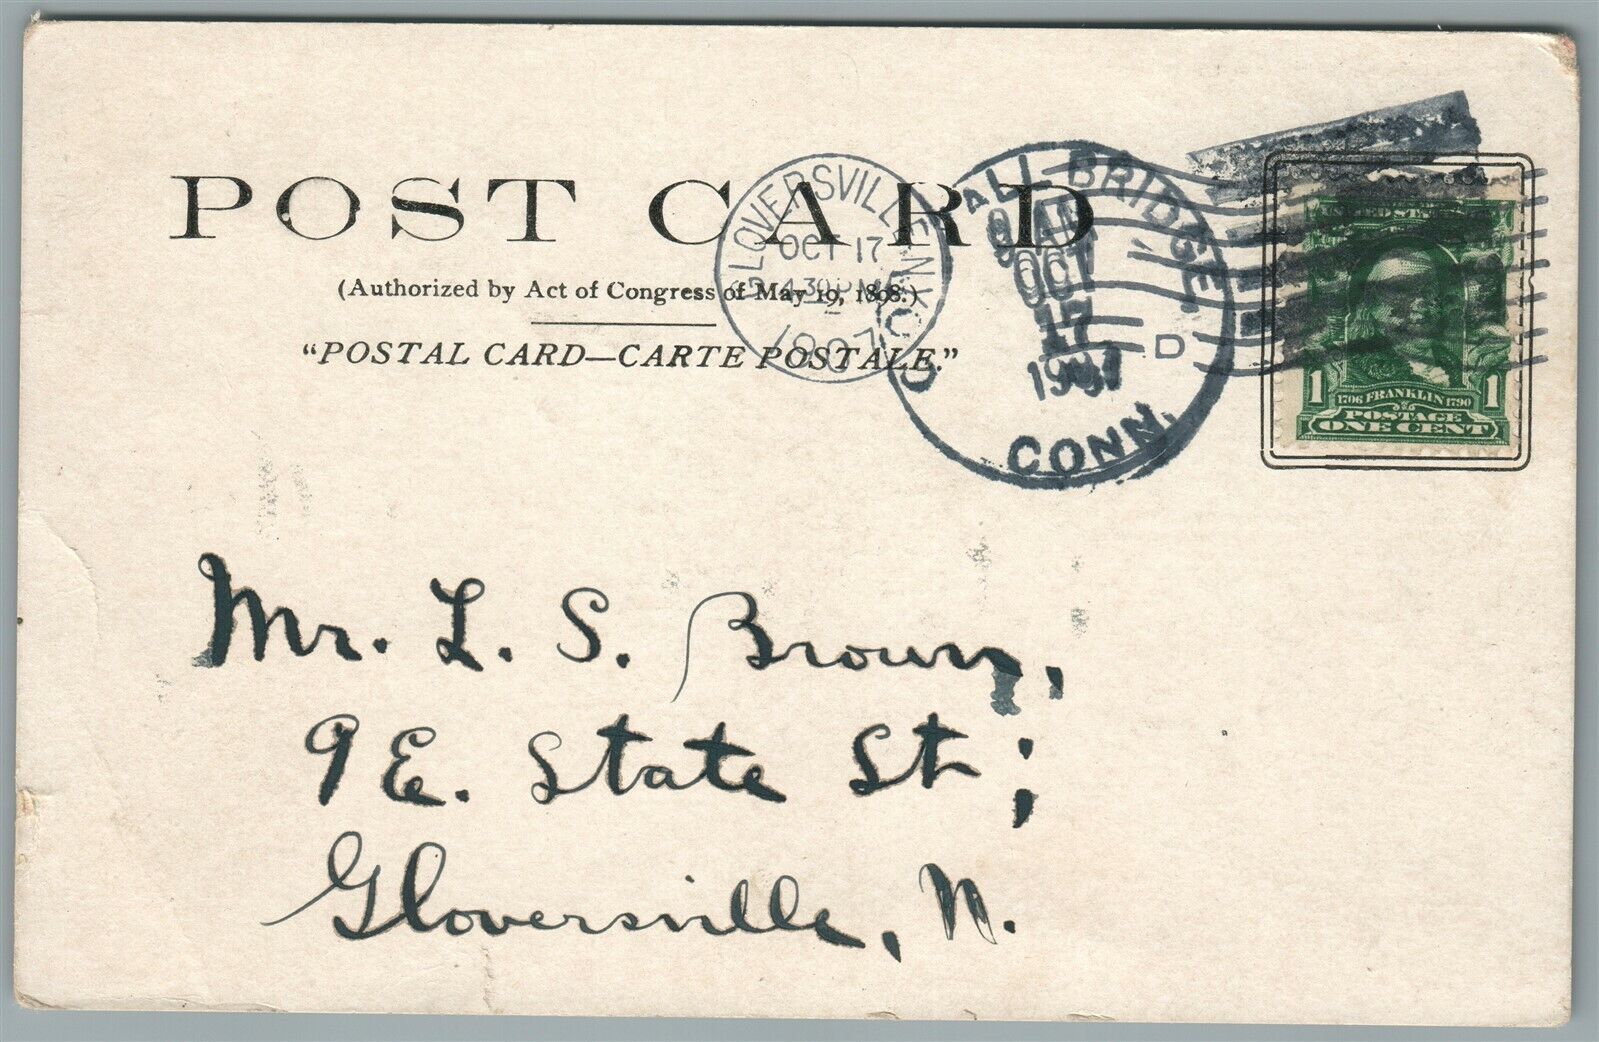 POST CARD
(Authorized by Act of Congress of May 19, 1898.)
"POSTAL CARD—CARTE POSTALE."
GLOVERSVILLE, N.Y.
OCT 17
4.30 PM
1907
BRIDGE,
OCT
17
1907
D
CONN.
UNITED STATES
1 1706 FRANKLIN 1790 1
POSTAGE
ONE CENT
Mr. L. S. Brown,
9 E. State St;
Gloversville, N.